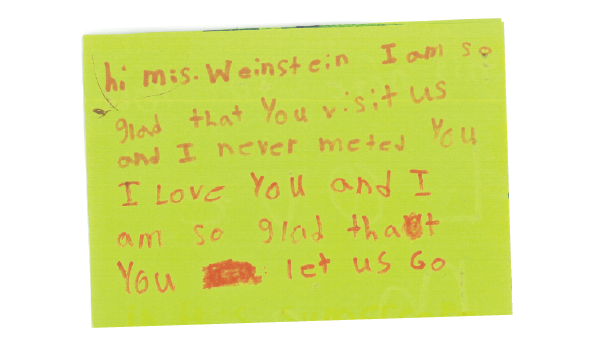 hi mis. Weinstein I am so
glad that You visit us
and I never meted You
I Love You and I
am so glad that
You let us Go